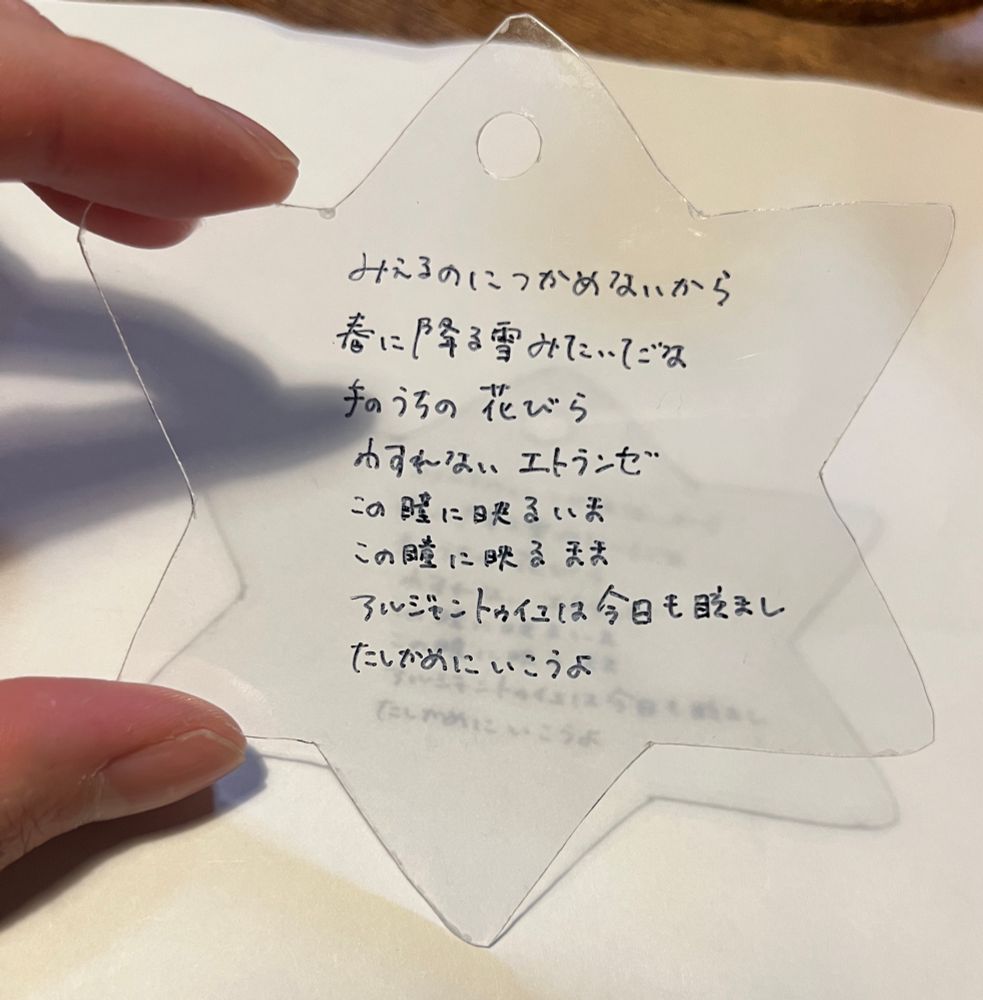 みえるのにつかめないから
春に降る雪みたいだな
手のうちの 花びら
わすれない エトランゼ
この瞳に映るいま
この瞳に映るまま
アルジャントゥイユは今日も眩まし
たしかめにいこうよ